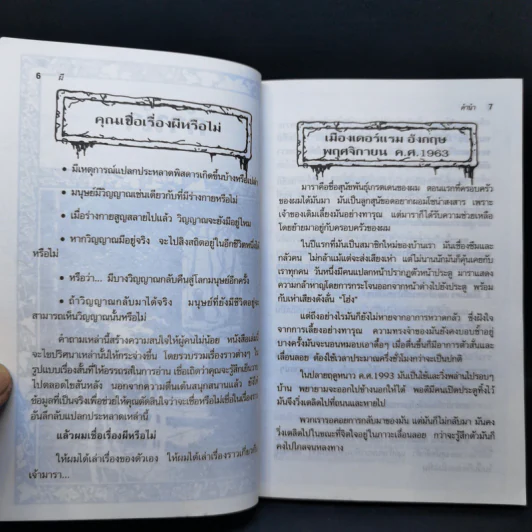 6 ผี
คุณเชื่อเรื่องผีหรือไม่
• มีเหตุการณ์แปลกประหลาดพิสดารเกิดขึ้นบ้างหรือไม่
• มนุษย์มีวิญญาณเช่นเดียวกับที่มีร่างกายหรือไม่
• เมื่อร่างกายสูญสลายไปแล้ว วิญญาณจะยังมีอยู่ไหม
• หากวิญญาณมีอยู่จริง จะไปสิงสถิตอยู่ในอีกชีวิตหนึ่ง
หรือไม่
• หรือว่า... มีบางวิญญาณกลับคืนสู่โลกมนุษย์อีกครั้ง
• ถ้าวิญญาณกลับมาได้จริง มนุษย์ที่ยังมีชีวิตอยู่จะ
สามารถเห็นวิญญาณนั้นหรือไม่
คำถามเหล่านี้สร้างความสนใจให้ผู้คนไม่น้อย หนังสือเล่มนี้
จะไขปริศนาเหล่านั้นให้กระจ่างขึ้น โดยรวบรวมเรื่องราวต่างๆ ใน
รูปแบบเรื่องสั้นที่ให้อรรถรสในการอ่าน เชื่อเถิดว่าคุณจะรู้สึก
ไปตลอดไขสันหลัง นอกจากความตื่นเต้นสนุกสนานแล้ว ยังให้
ข้อมูลที่เป็นจริงเพื่อช่วยให้คุณตัดสินใจว่าจะเชื่อหรือไม่เชื่อในเรื่อง
อันลึกลับแปลกประหลาดเหล่านี้
แล้วผมเชื่อเรื่องผีหรือไม่
ให้ผมได้เล่าเรื่องของตัวเอง ให้ผมได้เล่าเรื่องราวเกี่ยวกับ
เจ้ามารา...
คำนำ 7
เมืองเดอร์แรม อังกฤษ
พฤศจิกายน ค.ศ.1963
มาราคือชื่อสุนัขพันธุ์เกรตเดนของผม ตอนแรกที่ครอบครัว
ของผมได้มันมา มันเป็นลูกสุนัขอดอยากผอมโซน่าสงสาร เพราะ
เจ้าของเดิมเลี้ยงมันอย่างทารุณ แต่มาราก็ได้รับความช่วยเหลือ
โดยย้ายมาอยู่กับครอบครัวของผม
ในปีแรกที่มันเป็นสมาชิกใหม่ของบ้านเรา มันเชื่องซึมและ
กลัวคน ไม่กล้าแม้แต่จะส่งเสียงเห่า แต่ไม่นานนักมันก็คุ้นเคยกับ
เราทุกคน วันหนึ่งมีคนแปลกหน้าปรากฏตัวหน้าประตู มาราแสดง
ความกล้าหาญโดยการกระโจนออกจากหน้าต่างไปยังประตู พร้อม
กับเห่าเสียงดังลั่น "โฮ่ง"
แต่ถึงอย่างไรมันก็ยังไม่หายจากอาการหวาดกลัว ซึ่งฝังใจ
จากการเลี้ยงอย่างทารุณ ความทรงจำของมันยังคงบอบช้ำอยู่
บางครั้งมันจะนอนหมอบเอาดื้อๆ เมื่อตื่นขึ้นก็มีอาการตัวสั่นและ
เลื่อนลอย ต้องใช้เวลาประมาณครึ่งชั่วโมงกว่าจะเป็นปกติ
ในปลายฤดูหนาว ค.ศ.1993 มันเป็นไข้และวิ่งพล่านไปรอบๆ
บ้าน พยายามจะออกไปข้างนอกให้ได้ พอดีมีคนเปิดประตูทิ้งไว้
มันจึงวิ่งเตลิดไปที่ถนนและหายไป
พวกเรารอคอยการกลับมาของมัน แต่มันก็ไม่กลับมา มันคง
วิ่งเตลิดไปในขณะที่จิตใจอยู่ในภาวะเลื่อนลอย กว่าจะรู้สึกตัวมันก็
คงไปไกลจนหลงทาง